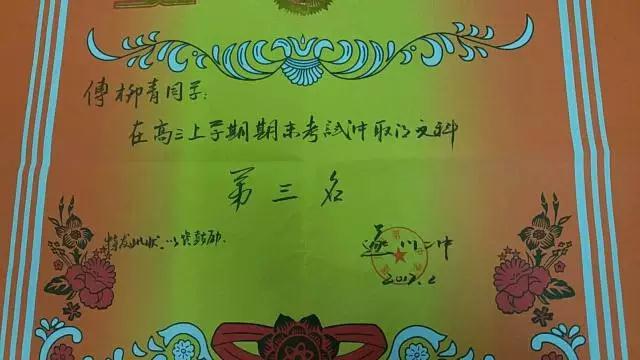 傅柳青同学:
在高三上学期期末考試中取得文科
第三名
特发此状,以资鼓励.
遂川二中